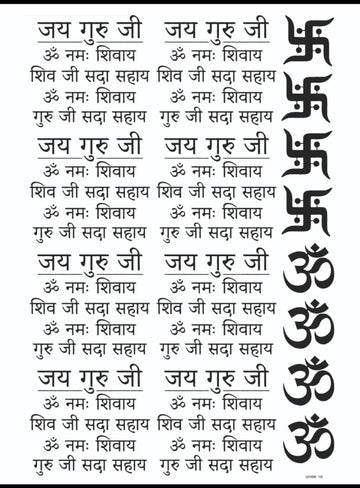 जय गुरु जी जय गुरु जी
ॐ नमः शिवाय ॐ नमः शिवाय
शिव जी सदा सहाय शिव जी सदा सहाय
ॐ नमः शिवाय ॐ नमः शिवाय
गुरु जी सदा सहाय गुरु जी सदा सहाय
जय गुरु जी जय गुरु जी
ॐ नमः शिवाय ॐ नमः शिवाय
शिव जी सदा सहाय शिव जी सदा सहाय
ॐ नमः शिवाय ॐ नमः शिवाय
गुरु जी सदा सहाय गुरु जी सदा सहाय
जय गुरु जी जय गुरु जी
ॐ नमः शिवाय ॐ नमः शिवाय
शिव जी सदा सहाय शिव जी सदा सहाय
ॐ नमः शिवाय ॐ नमः शिवाय
गुरु जी सदा सहाय गुरु जी सदा सहाय
जय गुरु जी जय गुरु जी
ॐ नमः शिवाय ॐ नमः शिवाय
शिव जी सदा सहाय शिव जी सदा सहाय
ॐ नमः शिवाय ॐ नमः शिवाय
गुरु जी सदा सहाय गुरु जी सदा सहाय
ॐ
ॐ
ॐ
ॐ